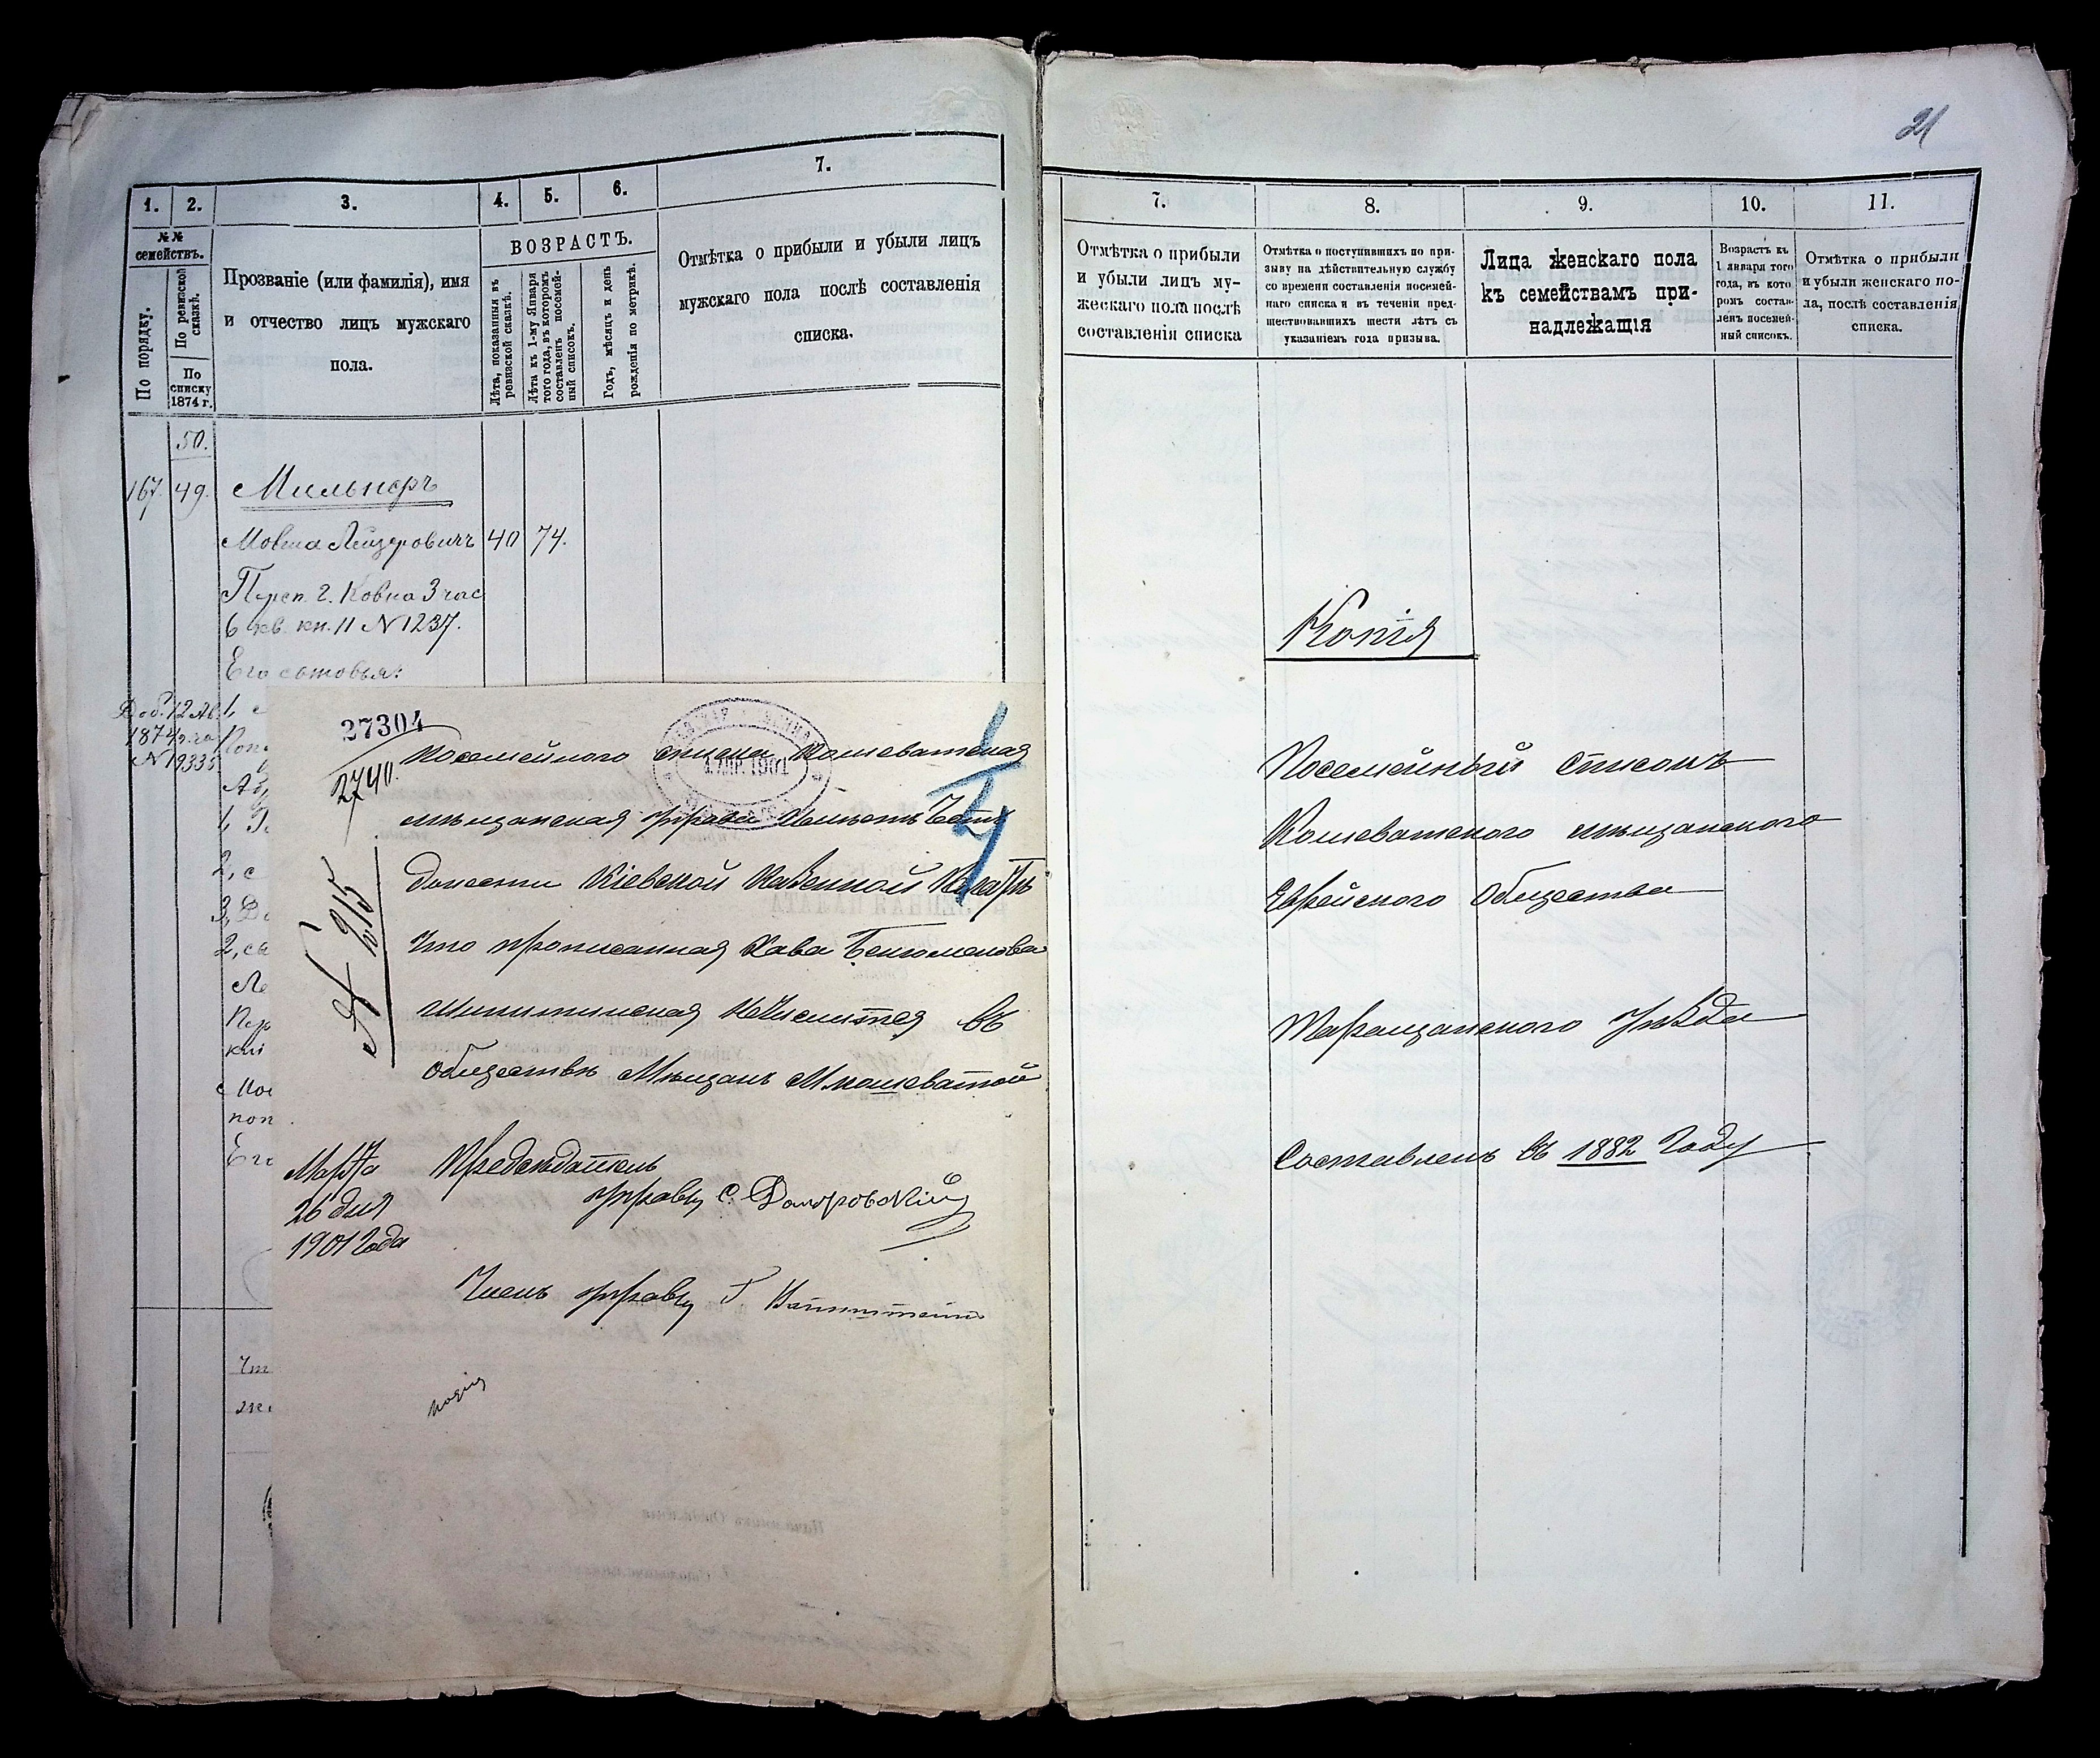 21
1.
2.
3.
4.
5.
6.
7.
№№ семействъ.
По порядку.
По ревизской сказкѣ.
По списку 1874 г.
Прозваніе (или фамилія), имя
и отчество лицъ мужскаго
пола.
ВОЗРАСТЪ.
Лѣта, показанныя въ ревизской сказкѣ.
Лѣта къ 1-му Января того года, въ которомъ составленъ посемейный списокъ.
Годъ, мѣсяцъ и день рожденія по метрикѣ.
Отмѣтка о прибыли и убыли лицъ
мужскаго пола послѣ составленія
списка.
50.
167. 49. Мильнеръ
Мовша Лейзеровичъ 40 74.
Переп. г. Ковна 3 час
6 кв. кн. 11 № 1237.
Его сыновья:
Доб. 12 Ав.
1874 г. за
№ 19335
27304
2740.
№ 215
Посемейного списка Кошеватская
мѣщанская управа имѣетъ честь
донести Кіевской Казенной Палатѣ
что прописанная Хава Беньоменова
нечислится въ
обществѣ мѣщанъ М Кошеватой
Марта
26 дня
1901 года
Предсѣдатель
управы С.
Членъ управы Г.
копія
7.
8.
9.
10.
11.
Отмѣтка о прибыли
и убыли лицъ му-
жескаго пола послѣ
составленія списка
Отмѣтка о поступившихъ по при-
зыву на дѣйствительную службу
со времени составленія посемей-
наго списка и въ теченіи пред-
шествовавшихъ шести лѣтъ съ
указаніемъ года призыва.
Лица женскаго пола
къ семействамъ при-
надлежащія
Возрастъ къ
1 января того
года, въ кото-
ромъ состав-
ленъ посемей-
ный списокъ.
Отмѣтка о прибыли
и убыли женскаго по-
ла, послѣ составленія
списка.
Копія
Посемейный списокъ
Кошеватского мѣщанского
Еврейского общества
Таращанского уѣзда
Составленъ въ 1882 году